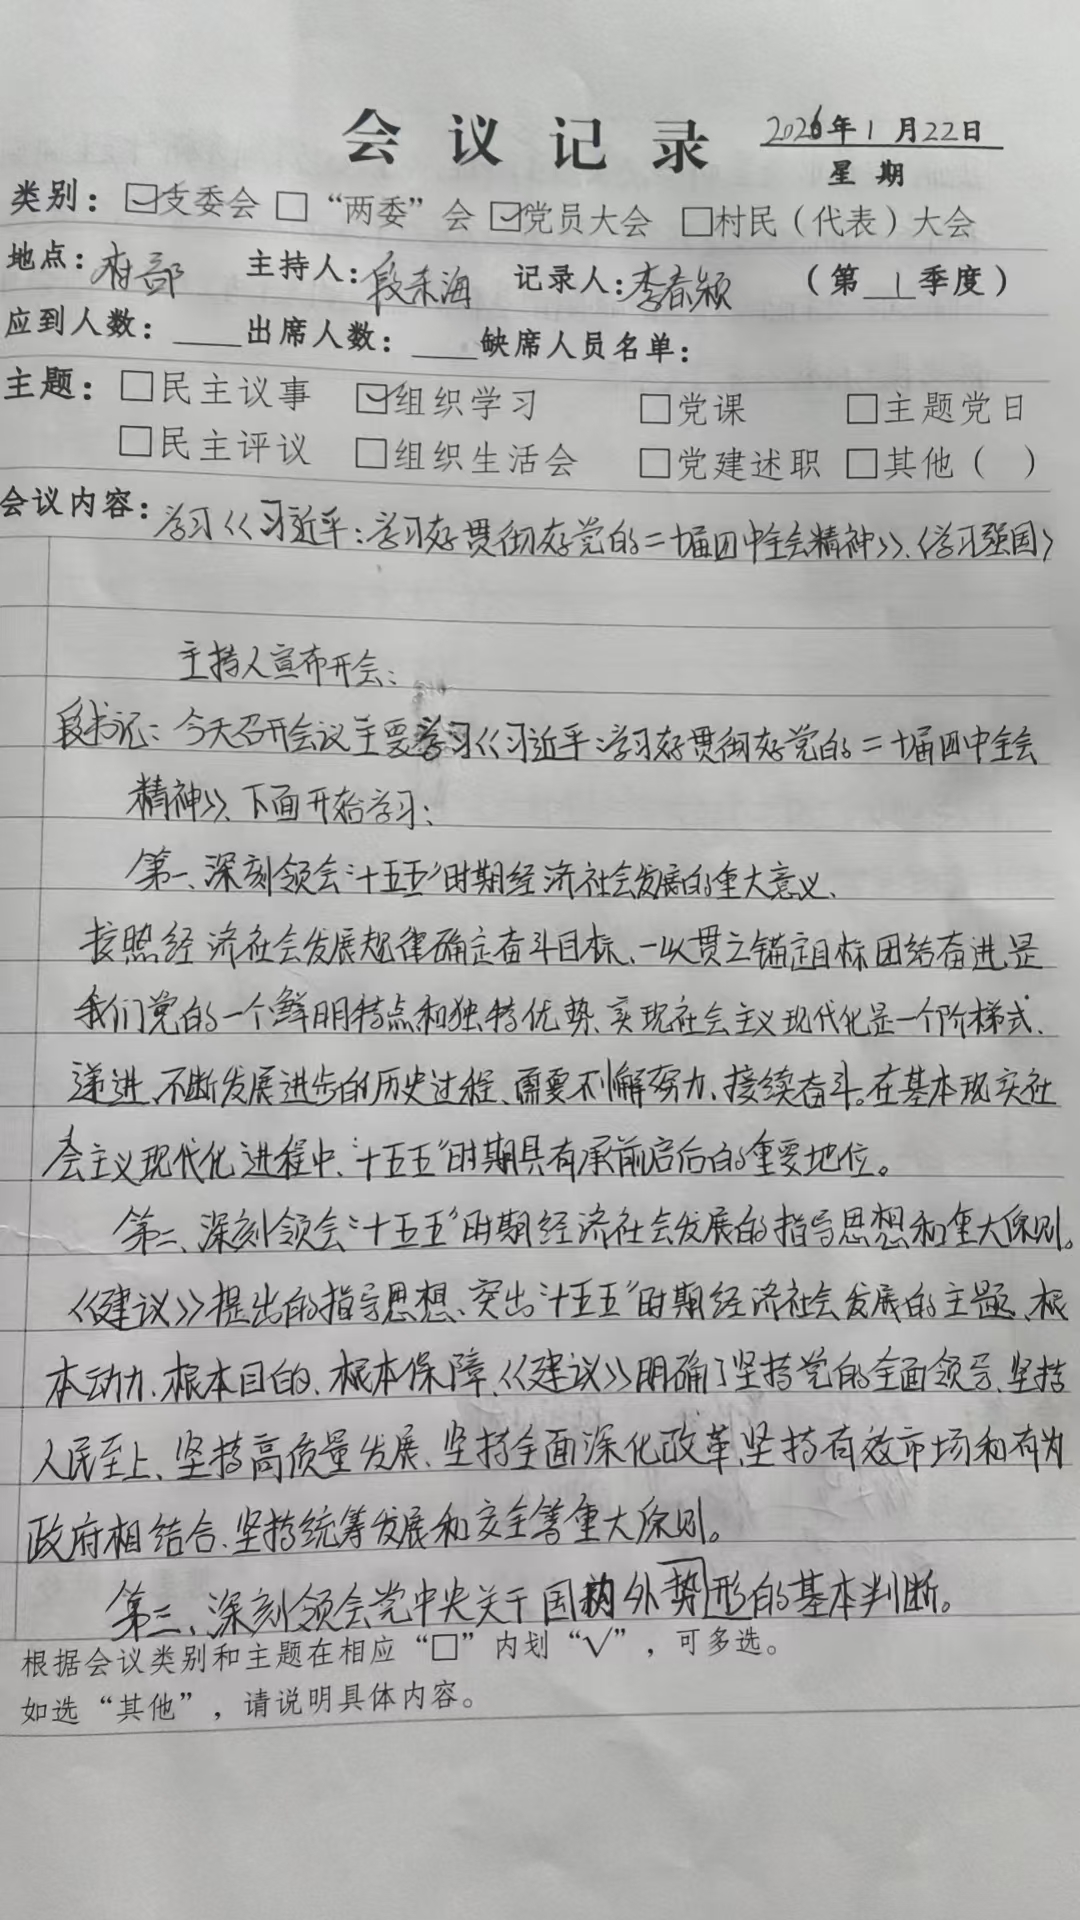 会议记录 2026年1月22日
星期
类别：☑支委会 □“两委”会 ☑党员大会 □村民（代表）大会
地点：村部 主持人：段东海 记录人：李春颖 （第1季度）
应到人数：____出席人数：____缺席人员名单：
主题：□民主议事 ☑组织学习 □党课 □主题党日
□民主评议 □组织生活会 □党建述职 □其他（ ）
会议内容：学习《习近平：学习好贯彻好党的二十届四中全会精神》、〈学习强国〉
主持人宣布开会：
段书记：今天召开会议主要学习《习近平：学习好贯彻好党的二十届四中全会
精神》、下面开始学习：
第一、深刻领会“十五五”时期经济社会发展的重大意义、
按照经济社会发展规律确定奋斗目标、一以贯之锚定目标团结奋进、是
我们党的一个鲜明特点和独特优势、实现社会主义现代化是一个阶梯式、
递进、不断发展进步的历史过程、需要不懈努力、接续奋斗。在基本现实社
会主义现代化进程中、“十五五”时期具有承前启后的重要地位。
第二、深刻领会“十五五”时期经济社会发展的指导思想和重大原则。
《建议》提出的指导思想、突出“十五五”时期经济社会发展的主题、根
本动力、根本目的、根本保障、《建议》明确了坚持党的全面领导、坚持
人民至上、坚持高质量发展、坚持全面深化改革、坚持有效市场和有为
政府相结合、坚持统筹发展和安全等重大原则。
第三、深刻领会党中央关于国内外势形的基本判断。
根据会议类别和主题在相应“□”内划“√”，可多选。
如选“其他”，请说明具体内容。